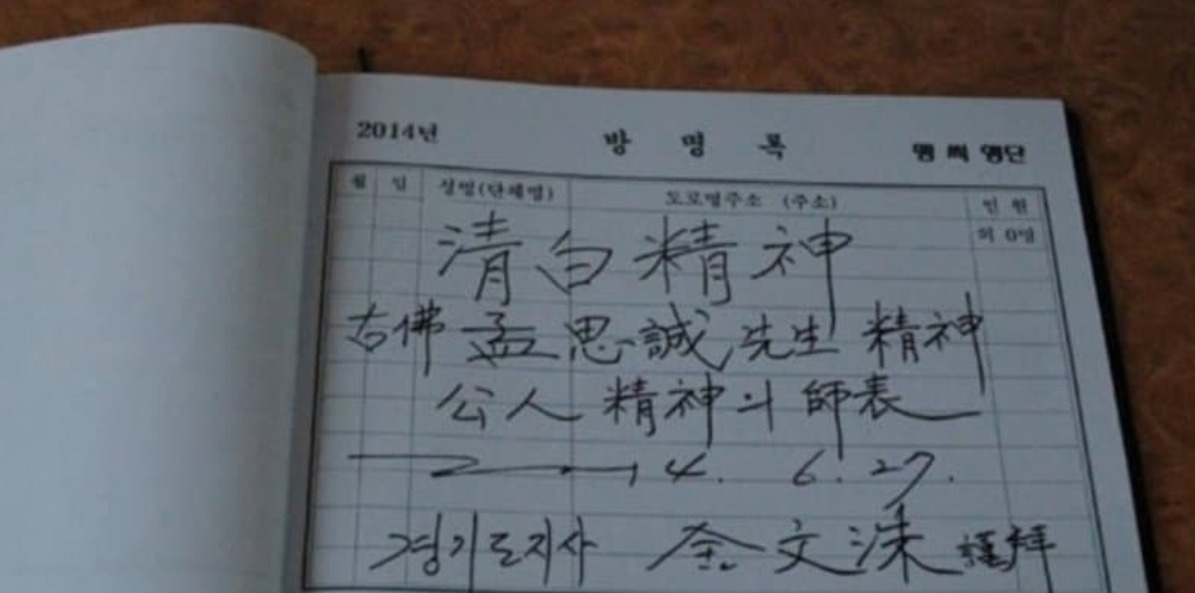 2014년 방 명 록 맹 씨 행단
월 일 성명(단체명) 도로명주소 (주소) 인 원
외 0명
淸白精神
古佛 孟思誠先生 精神
公人 精神의 師表
2014. 6. 27.
경기도지사 金文洙 謹拜